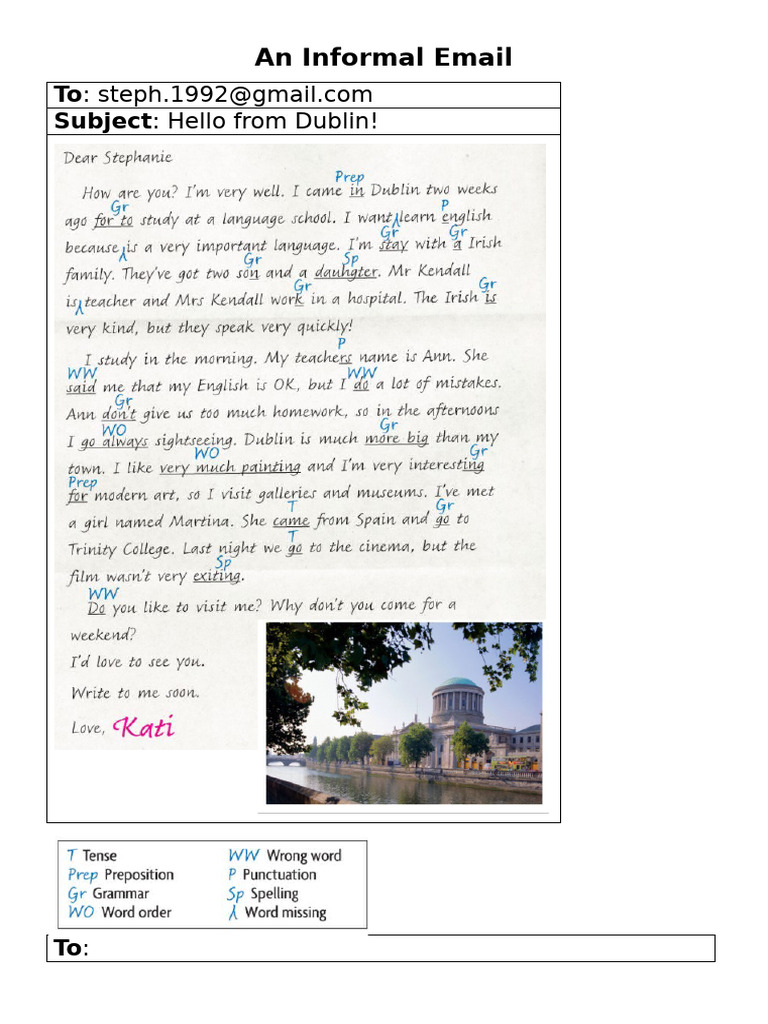 An Informal Email
To: steph.1992@gmail.com
Subject: Hello from Dublin!
Dear Stephanie
Prep
How are you? I'm very well. I came in Dublin two weeks
Gr P
ago for to study at a language school. I want⁁learn english
Gr Gr
because⁁is a very important language. I'm stay with a Irish
Gr Sp
family. They've got two son and a dauhgter. Mr Kendall
Gr Gr
is⁁teacher and Mrs Kendall work in a hospital. The Irish is
very kind, but they speak very quickly!
P
I study in the morning. My teachers name is Ann. She
WW WW
said me that my English is OK, but I do a lot of mistakes.
Gr
Ann don't give us too much homework, so in the afternoons
WO Gr
I go always sightseeing. Dublin is much more big than my
WO Gr
town. I like very much painting and I'm very interesting
Prep
for modern art, so I visit galleries and museums. I've met
T Gr
a girl named Martina. She came from Spain and go to
T
Trinity College. Last night we go to the cinema, but the
Sp
film wasn't very exiting.
WW
Do you like to visit me? Why don't you come for a
weekend?
I'd love to see you.
Write to me soon.
Love, Kati
T Tense WW Wrong word
Prep Preposition P Punctuation
Gr Grammar Sp Spelling
WO Word order ⁁ Word missing
To: